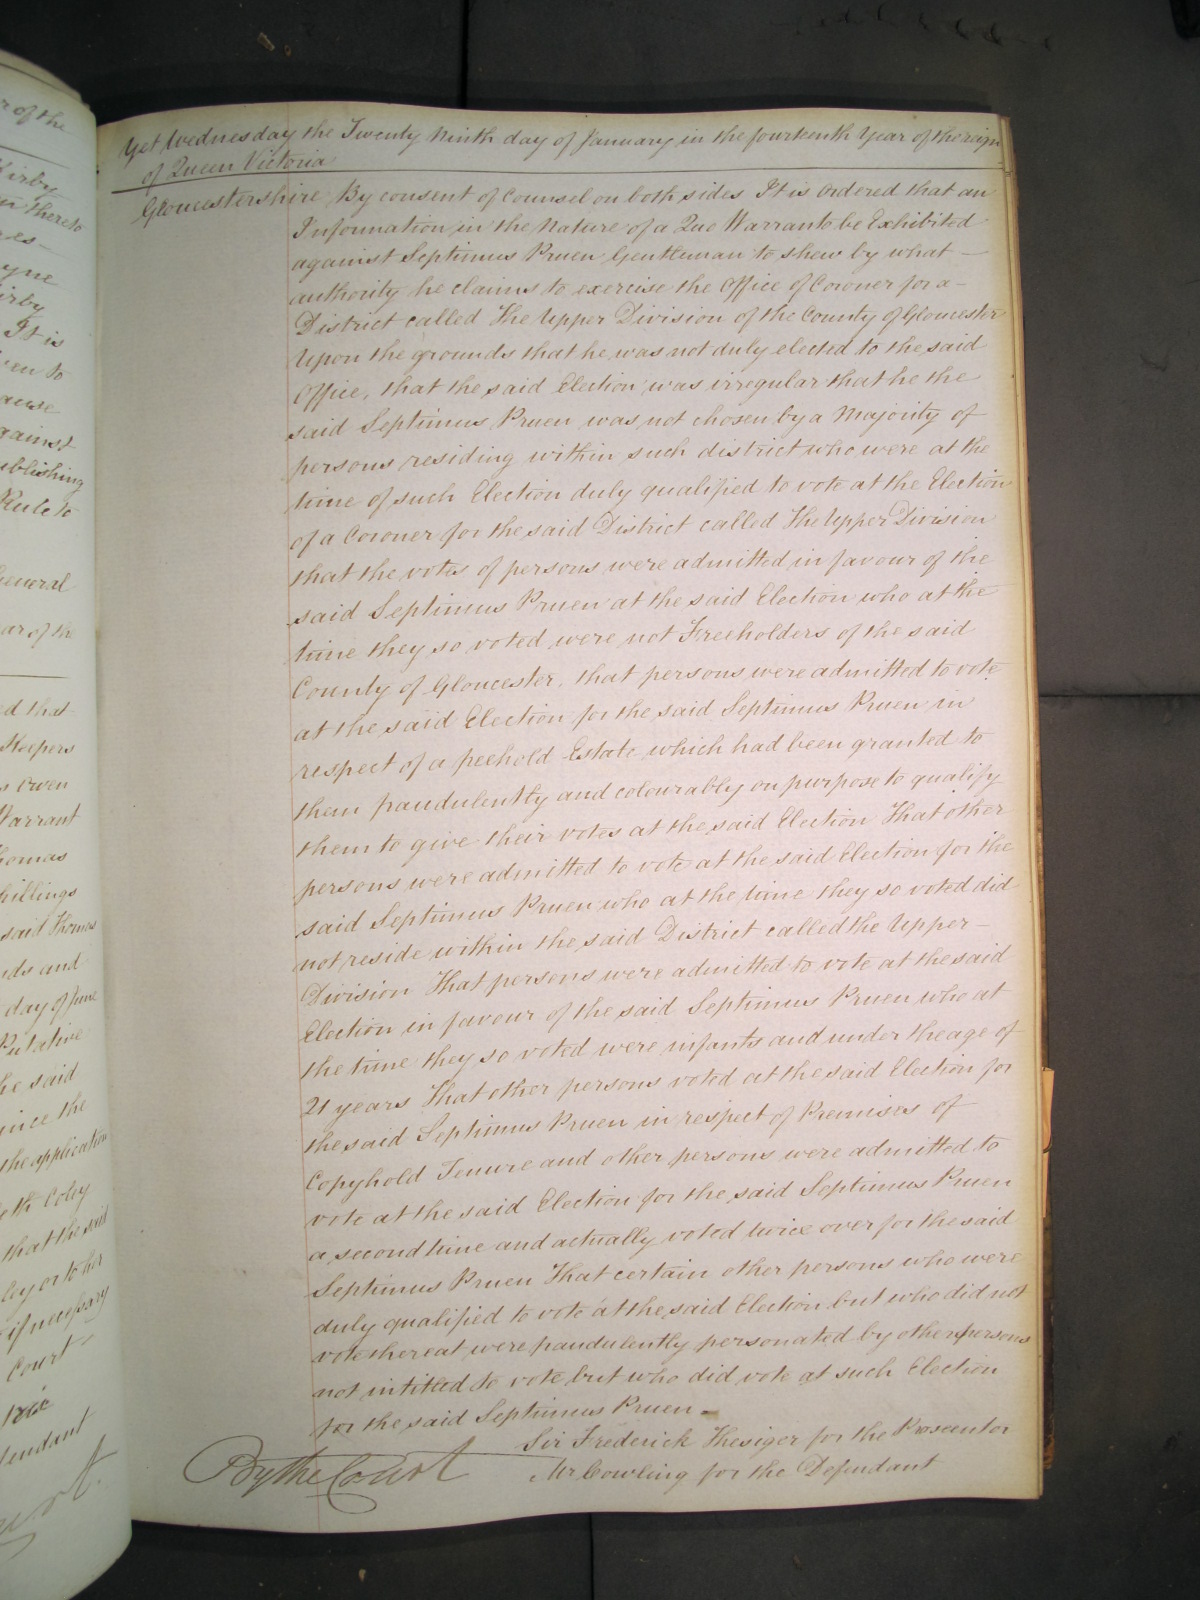 r of the
Kirby
n thereto
res-
yne
irby
It is
ven to
ause
gainst
ublishing
Rule to
General
ar of the
ed that
Keepers
Owen
Warrant
homas
hillings
said Thomas
nds and
day of June
Putative
he said
ince the
the application
eth Coley
that the said
ley or to her
if necessary
Court
fendant
Yet Wednesday the Twenty Ninth day of January in the fourteenth Year of the reign
of Queen Victoria
Gloucestershire By consent of Counsel on both sides It is Ordered that an
Information in the Nature of a Quo Warranto be Exhibited
against Septimus Pruen Gentleman to shew by what -
authority he claims to exercise the Office of Coroner for a -
District called The Upper Division of the County of Gloucester
Upon the grounds that he was not duly elected to the said
Office, that the said Election was irregular that he the
said Septimus Pruen was not chosen by a Majority of
persons residing within such district who were at the
time of such Election duly qualified to vote at the Election
of a Coroner for the said District called The Upper Division
that the votes of persons were admitted in favour of the
said Septimus Pruen at the said Election who at the
time they so voted were not Freeholders of the said
County of Gloucester. that persons were admitted to vote
at the said Election for the said Septimus Pruen in
respect of a freehold Estate which had been granted to
them fraudulently and colourably on purpose to qualify
them to give their votes at the said Election That other
persons were admitted to vote at the said Election for the
said Septimus Pruen who at the time they so voted did
not reside within the said District called the Upper -
Division That persons were admitted to vote at the said
Election in favour of the said Septimus Pruen who at
the time they so voted were infants and under the age of
21 years That other persons voted at the said Election for
the said Septimus Pruen in respect of Premises of
Copyhold Tenure and other persons were admitted to
vote at the said Election for the said Septimus Pruen
a second time and actually voted twice over for the said
Septimus Pruen That certain other persons who were
duly qualified to vote at the said Election but who did not
vote thereat were fraudulently personated by other persons
not intitled to vote but who did vote at such Election
for the said Septimus Pruen -
Sir Frederick Thesiger for the Prosecutor
Mr Cowling for the Defendant
By the Court